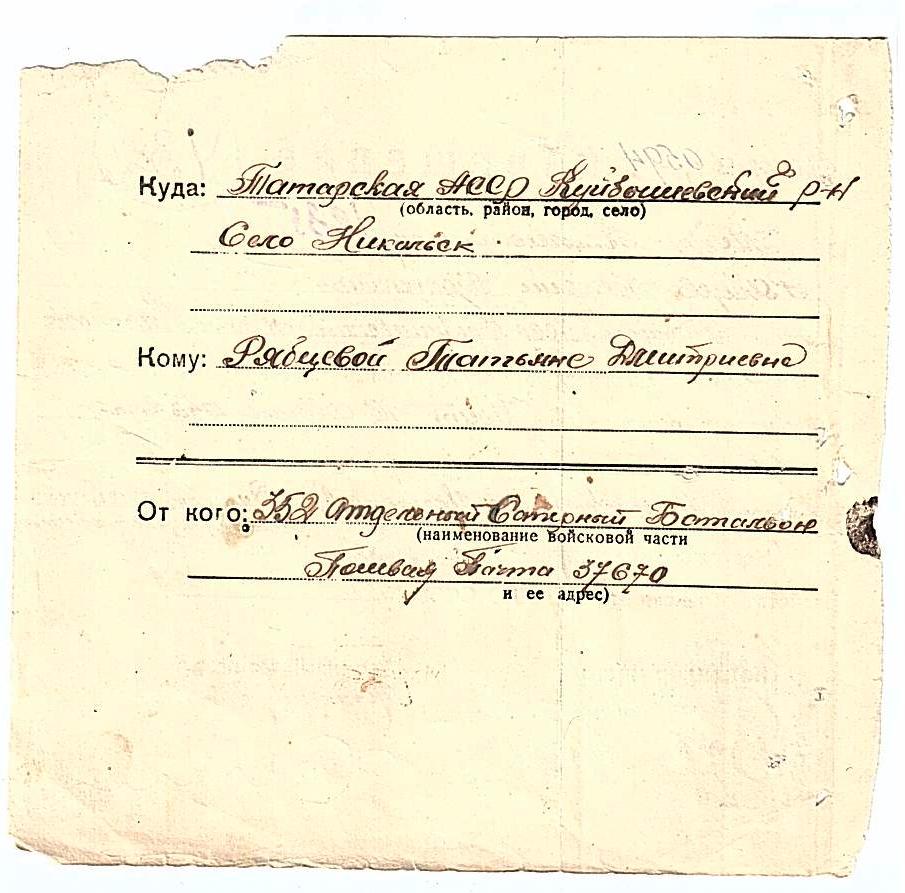 Куда: Татарская АССР Куйбышевский р-н
(область, район, город, село)
Село Никольск
Кому: Рябцевой Татьяне Дмитриевне
От кого: 352 Отдельный Саперный Батальон
(наименование войсковой части
Полевая Почта 37670
и ее адрес)